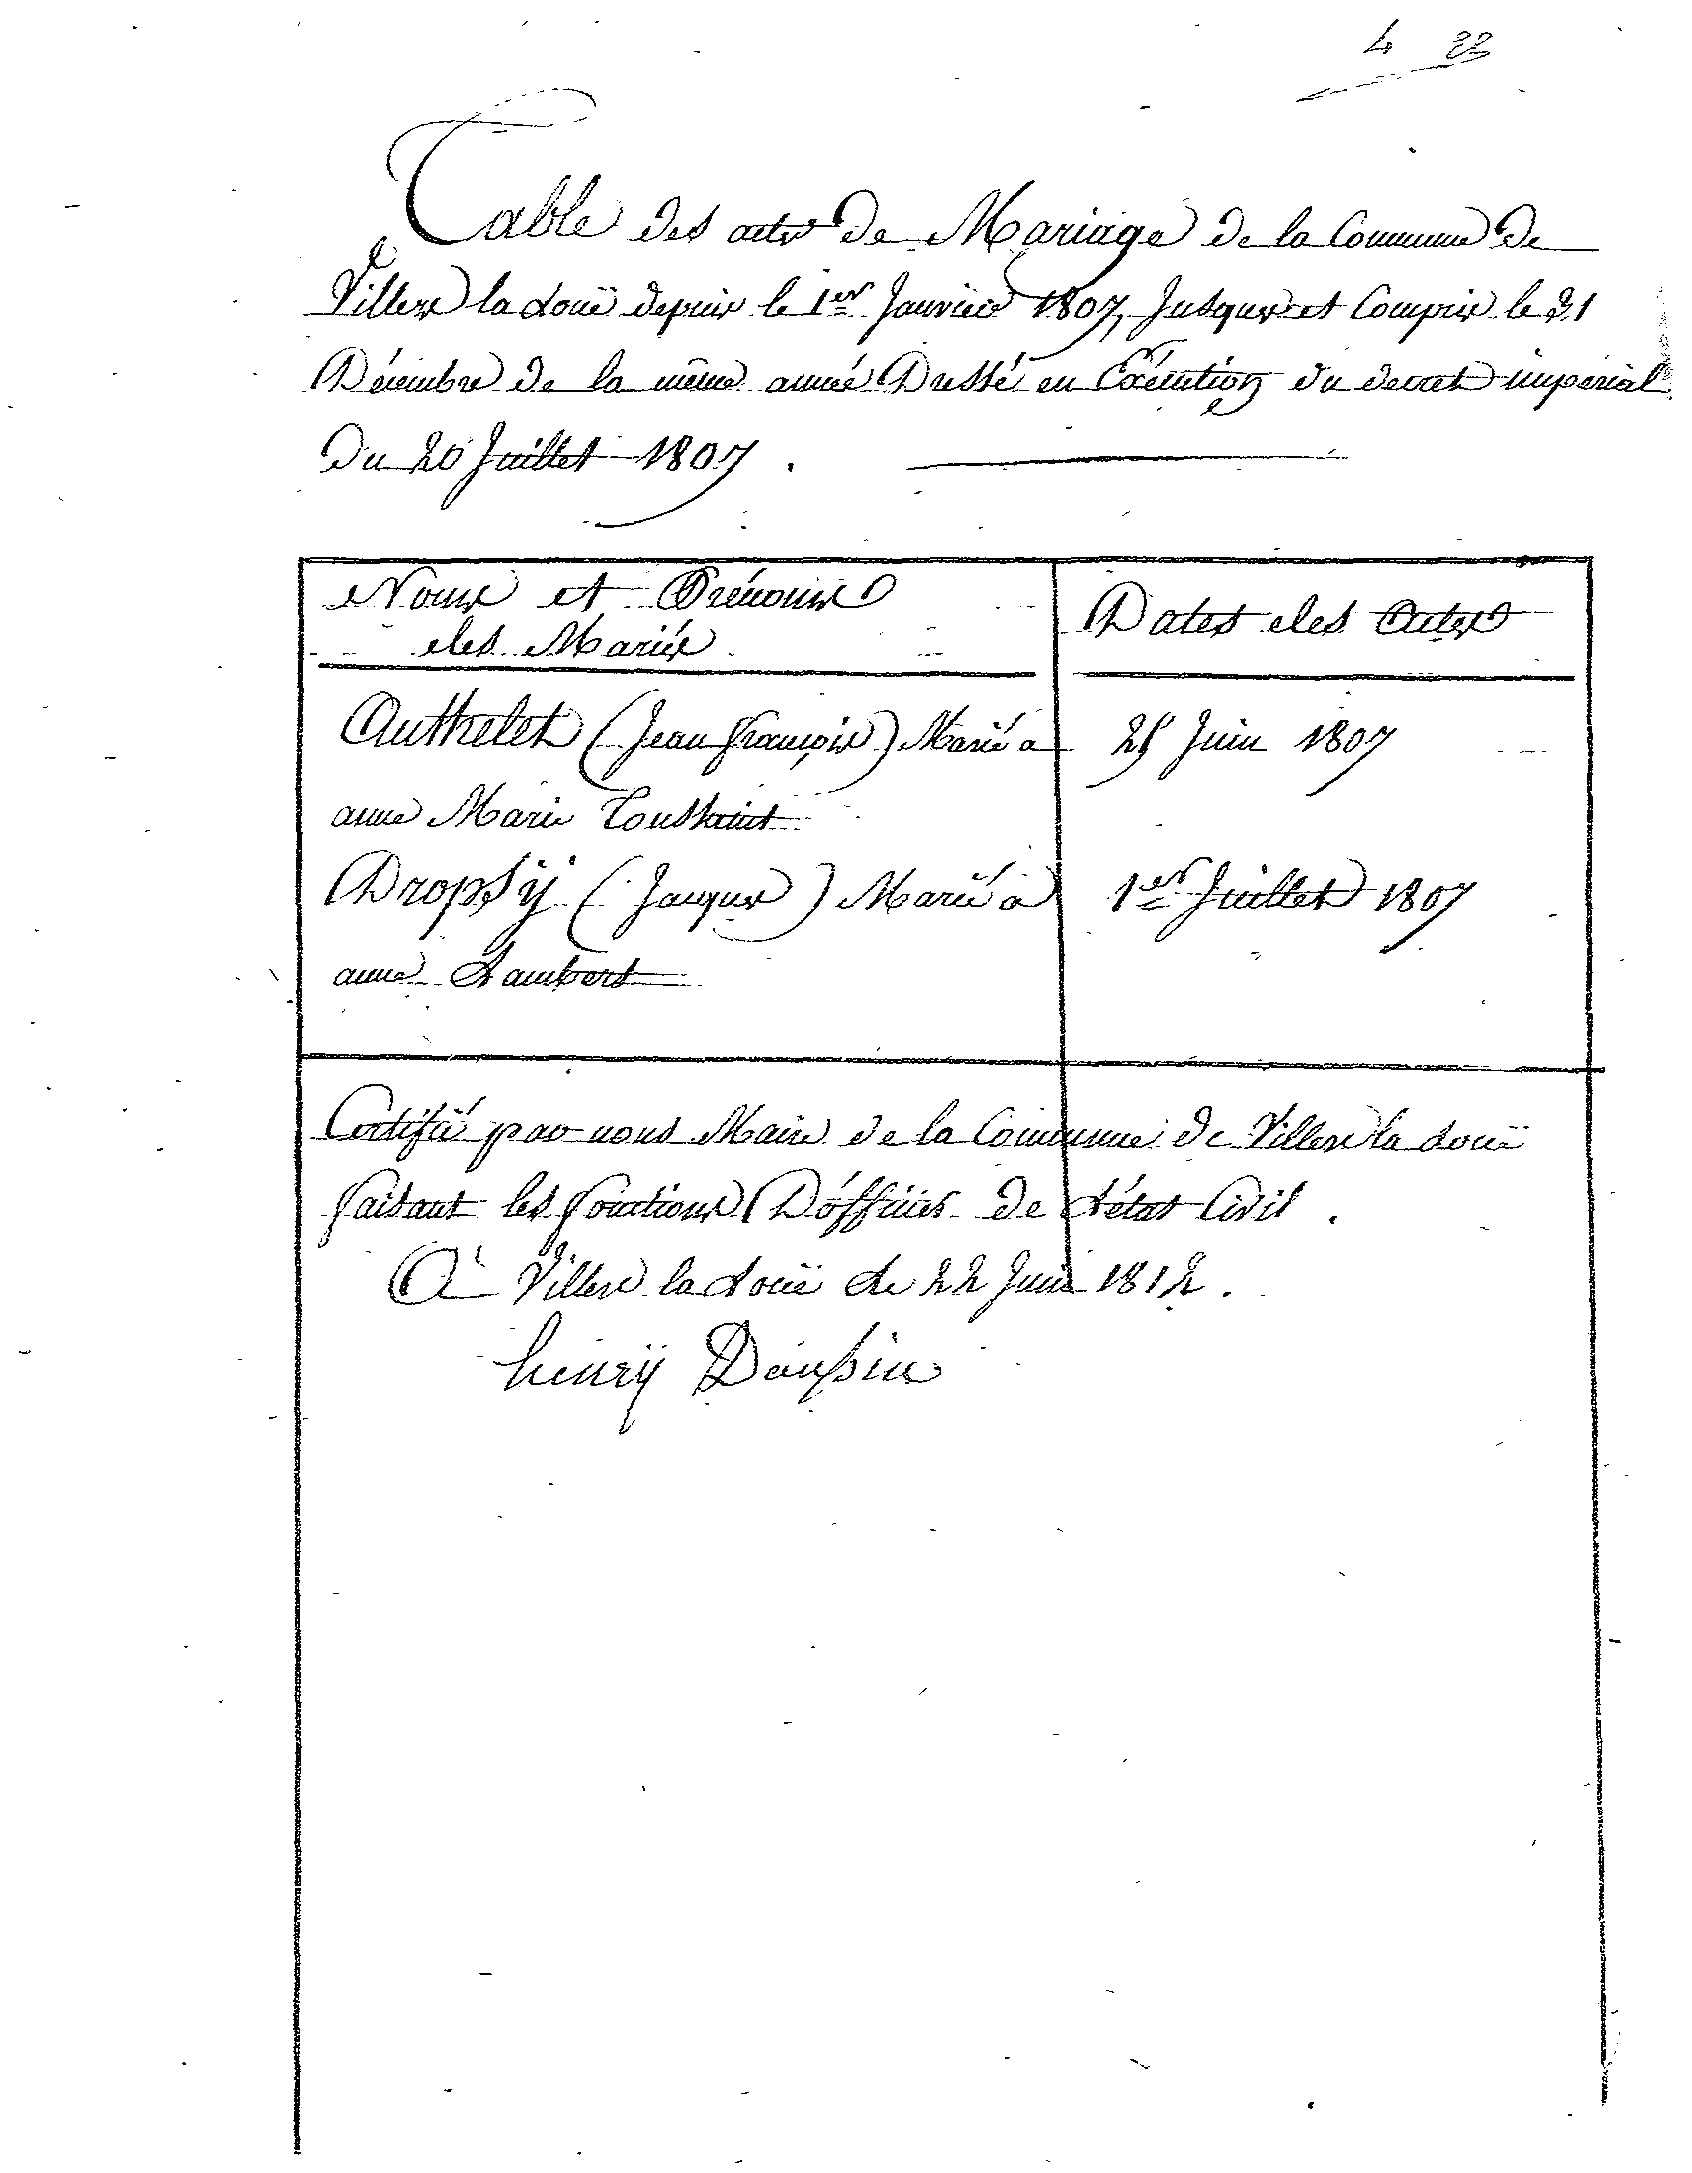 4 22
Table des actes de Mariage de la Commune de
Villers la Loüe depuis le 1er Janvier 1807, Jusques et Compris le 31
Décembre de la même année Dressé en Exécution du decret impérial
du 20 Juillet 1807.
Noms et Prénoms
des Mariés
Dates des Actes
Authelet (Jean françois) Marié a
25 Juin 1807
anne Marie Toussaint
Dropsÿ (Jacques) Marié a
1er Juillet 1807
anne Lambert
Certifié par nous Maire de la Commune de Villers la Loüe
faisant les fonctions D'officier de L'état Civil.
A Villers la Loüe Le 22 Juin 1812.
henrÿ